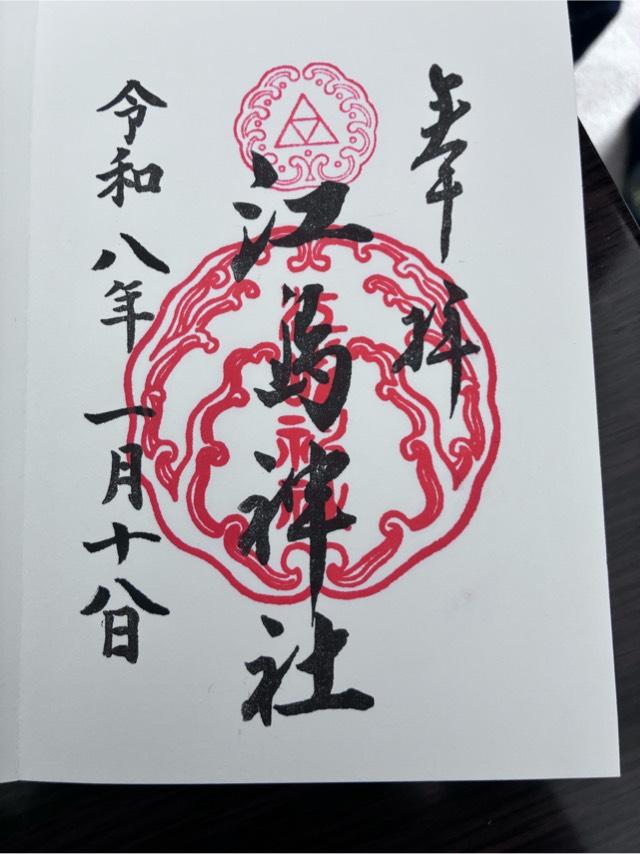 奉拝
江島神社
令和八年一月十八日